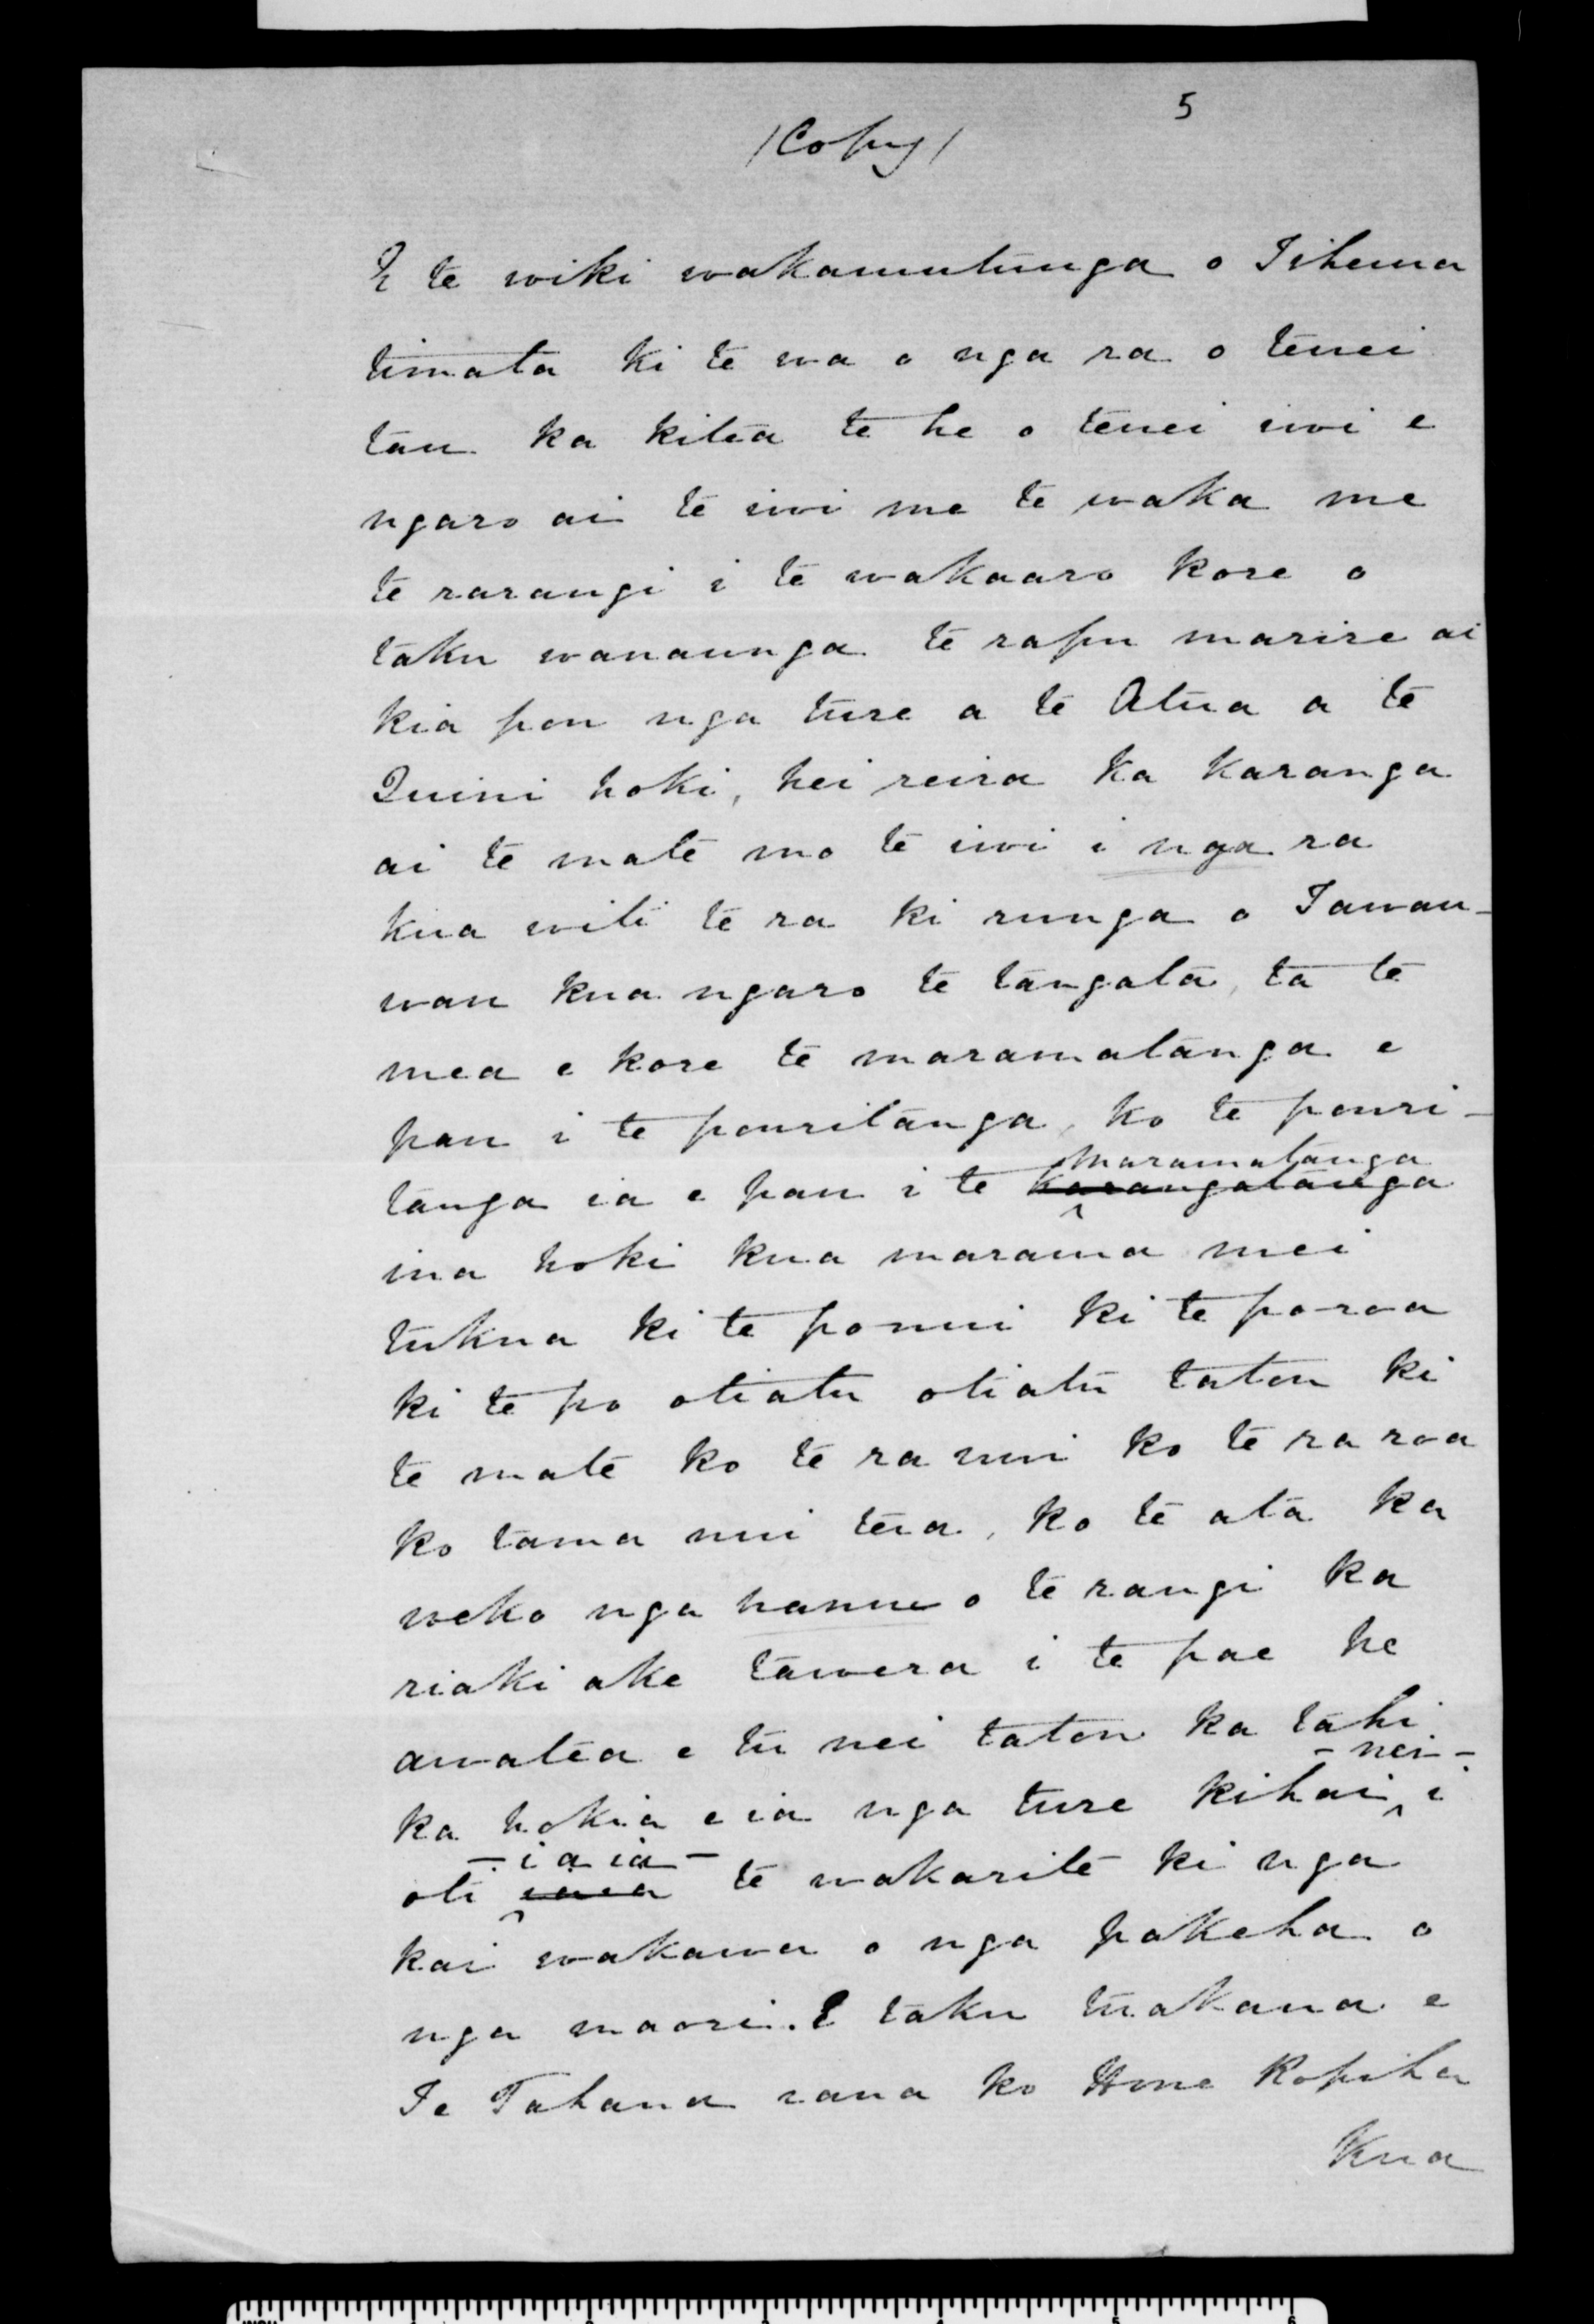 5
/Copy/
I te wiki wakamutunga o Tihema
timata ki te wa o nga ra o tenei
tau ka kitea te he o tenei iwi e
ngaro ai te iwi me te waka me
te rarangi i te wakaaro kore o
taku wanaunga te rapu marire ai
kia pou nga ture a te Atua a te
Quini hoki, hei reira ka karanga
ai te mate mo te iwi i nga ra
kua witi te ra ki runga o Tawau-
wau kua ngaro te tangata, ta te
mea e kore te maramatanga e
pau i te pouritanga, ko te pouri-
maramatanga
tanga ia e pau i te karangatanga
ina hoki kua marama mei
tukua ki te ponui ki te poroa
ki te po otiatu otiatu tatou ki
te mate ko te ra nui ko te ra roa
ko tama nui tera, ko te ata ka
weko nga hanue o te rangi ka
riaki ake tawera i te pae he
awatea e tu nei tatou ka tahi
- nei -
ka hokia e ia nga ture kihai i
- i a ia -
oti iaia te wakarite ki nga
kai wakawa o nga pakeha o
nga maori. E taku tuakana e
Te Tahana rana ko Hone Ropiha
Kua